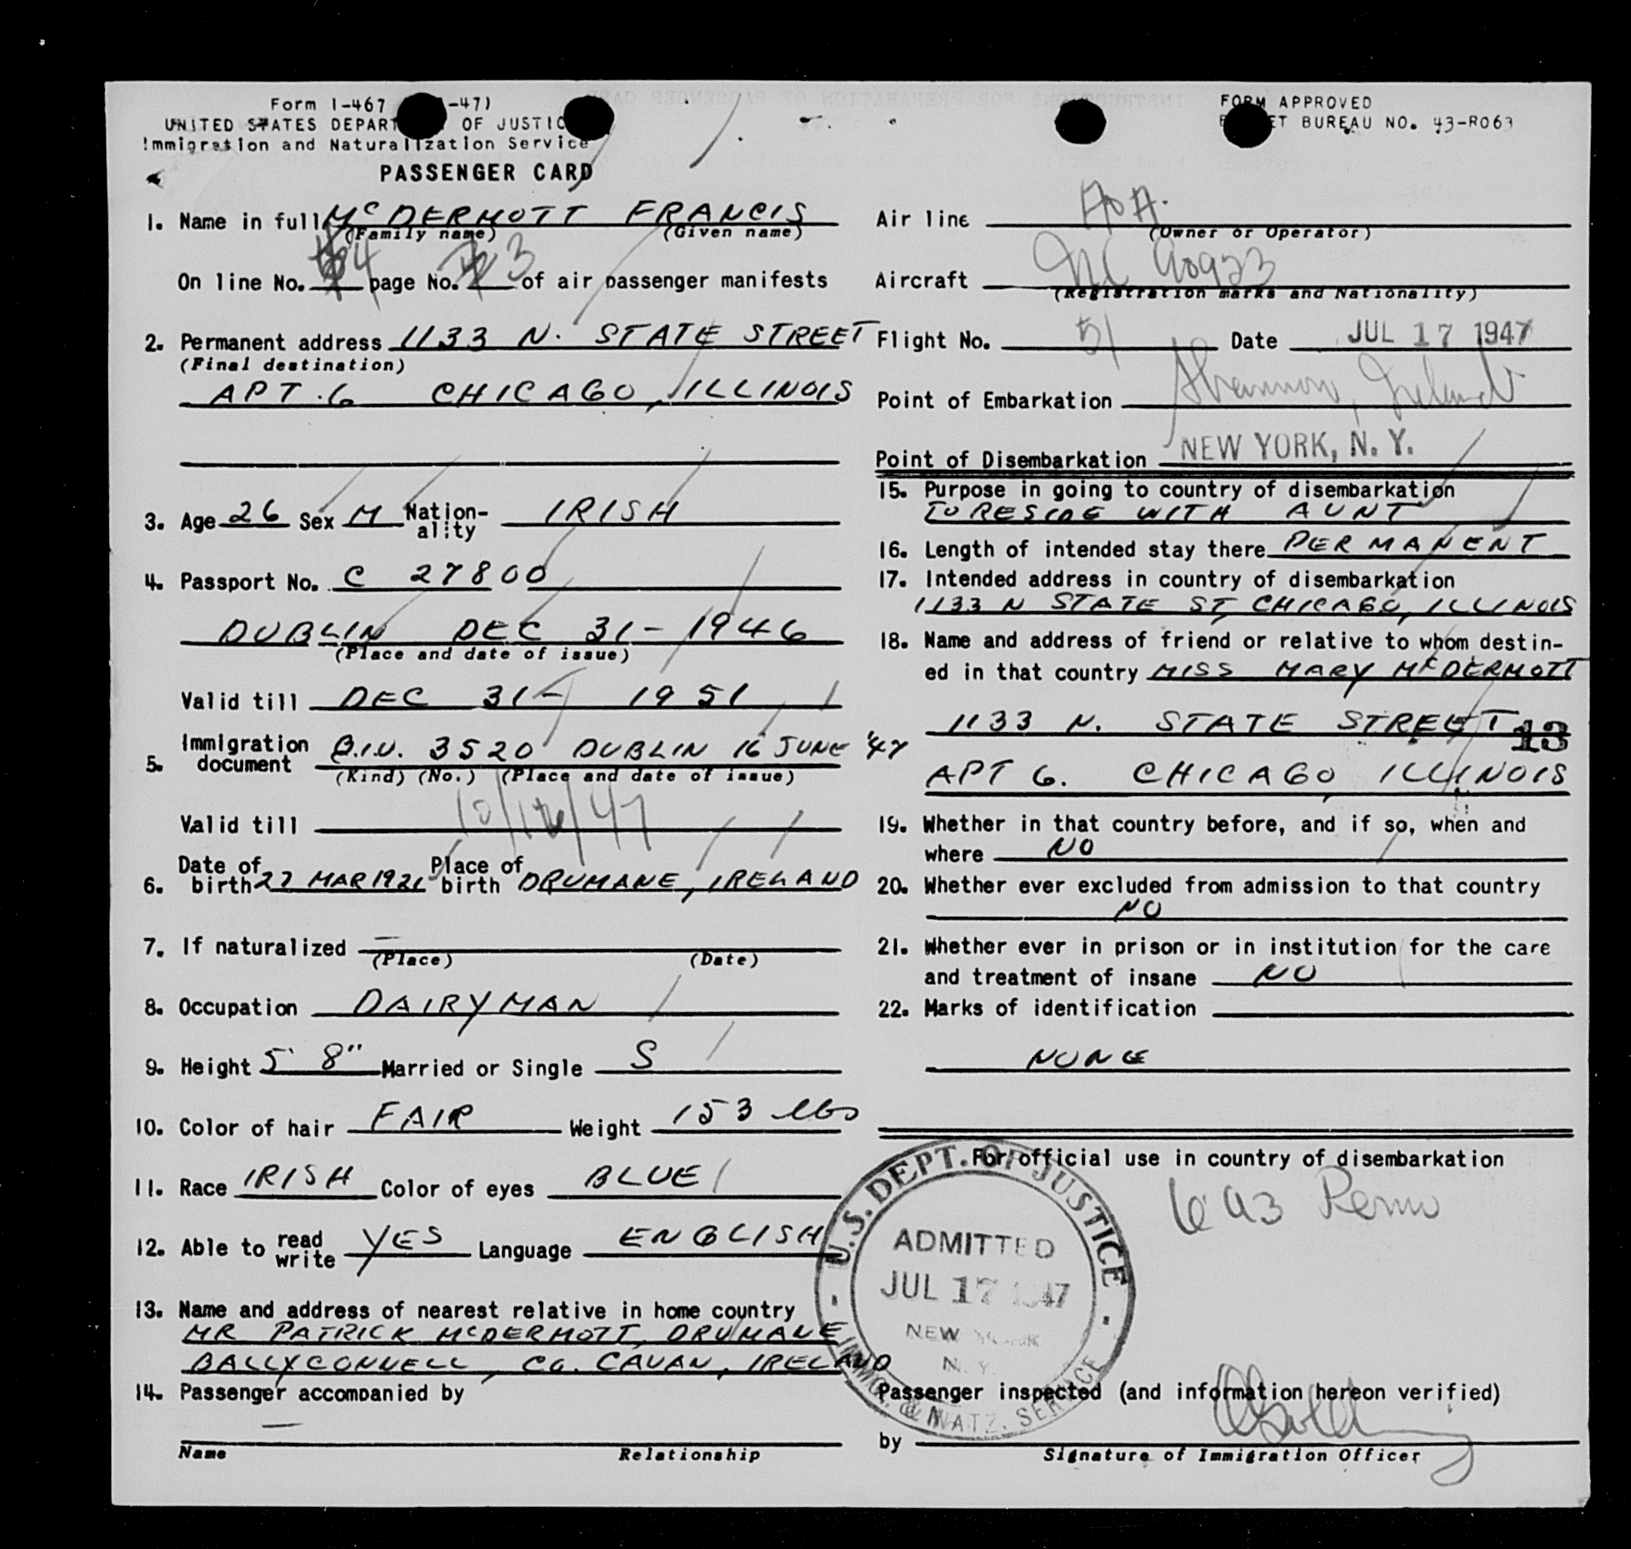 Form I-467 -47)
UNITED STATES DEPART OF JUSTIC
Immigration and Naturalization Service
PASSENGER CARD
FORM APPROVED
ET BUREAU NO. 43-R063
1. Name in full McDERMOTT FRANCIS
(Family name) (Given name)
On line No. 4 page No. 3 of air passenger manifests
2. Permanent address 1133 N. STATE STREET
(Final destination)
APT. 6 CHICAGO, ILLINOIS
3. Age 26 Sex M Nation-
ality IRISH
4. Passport No. C 27800
DUBLIN DEC 31 - 1946
(Place and date of issue)
Valid till DEC 31 - 1951
5. Immigration
document Q.I.V. 3520 DUBLIN 16 JUNE '47
(Kind) (No.) (Place and date of issue)
Valid till 10/16/47
6. Date of
birth 27 MAR 1921 Place of
birth DRUMANE, IRELAND
7. If naturalized —
(Place) (Date)
8. Occupation DAIRYMAN
9. Height 5' 8" Married or Single S
10. Color of hair FAIR Weight 153 lbs
11. Race IRISH Color of eyes BLUE
12. Able to read
write YES Language ENGLISH
13. Name and address of nearest relative in home country
MR PATRICK McDERMOTT, DRUMANE
BALLYCONNELL, CO. CAVAN, IRELAND
14. Passenger accompanied by
—
Name Relationship
Air line AOA.
(Owner or Operator)
Aircraft NC 90923
(Registration marks and Nationality)
Flight No. 51 Date JUL 17 1947
Point of Embarkation Shannon, Ireland
Point of Disembarkation NEW YORK, N. Y.
15. Purpose in going to country of disembarkation
TO RESIDE WITH AUNT
16. Length of intended stay there PERMANENT
17. Intended address in country of disembarkation
1133 N STATE ST, CHICAGO, ILLINOIS
18. Name and address of friend or relative to whom destin-
ed in that country MISS MARY McDERMOTT
1133 N. STATE STREET
13
APT 6. CHICAGO, ILLINOIS
19. Whether in that country before, and if so, when and
where NO
20. Whether ever excluded from admission to that country
NO
21. Whether ever in prison or in institution for the care
and treatment of insane NO
22. Marks of identification
NONE
For official use in country of disembarkation
U.S. DEPT. OF JUSTICE
ADMITTED
JUL 17 1947
NEW YORK
N. Y.
IMMG. & NATZ. SERVICE
Passenger inspected (and information hereon verified)
by
Signature of Immigration Officer